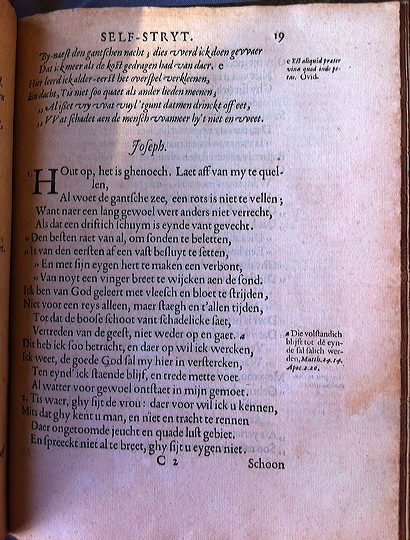 SELF-STRYT. 19
By-naest den gantschen nacht; dies wierd ick doen gewaer
Dat ick meer als de kost gedragen had van daer. c
Hier leerd ick alder-eerst het overspel verkleenen,
En dacht, Tis niet soo quaet als ander lieden meenen;
„ Al isset vry wat vuyl 'tgunt datmen drinckt off eet,
„ VVat schadet aen de mensch wanneer hy't niet en weet.
c Est aliquid præter
vina quod inde pe-
tas. Ovid.
Joseph.
1. HOut op, het is ghenoech. Laet aff van my te quel-
len,
Al woet de gantsche zee, een rots is niet te vellen;
Want naer een lang gewoel wert anders niet verrecht,
Als dat een driftich schuym is eynde vant gevecht.
„ Den besten raet van al, om sonden te beletten,
„ Is van den eersten af een vast besluyt te setten,
„ En met sijn eygen hert te maken een verbont,
„ Van noyt een vinger breet te wijcken aen de sond.
Ick ben van God geleert met vleesch en bloet te strijden,
Niet voor een reys alleen, maer staegh en t'allen tijden,
Tot dat de boose schoot vant schadelicke saet,
Vertreden van de geest, niet weder op en gaet. a
Dit heb ick soo betracht, en daer op wil ick wercken,
Ick weet, de goede God sal my hier in verstercken,
Ten eynd' ick staende blijf, en trede mette voet
Al watter voor gewoel ontstaet in mijn gemoet.
a Die volstandich
blijft tot dē eyn-
de sal salich wer-
den, Matth. 24. 14.
Apoc. 2. 26.
2. Tis waer, ghy sijt de vrou: daer voor wil ick u kennen,
Mits dat ghy kent u man, en niet en tracht te rennen
Daer ongetoomde jeucht en quade lust gebiet.
En spreeckt niet al te breet, ghy sijt u eygen niet.
C 2 Schoon